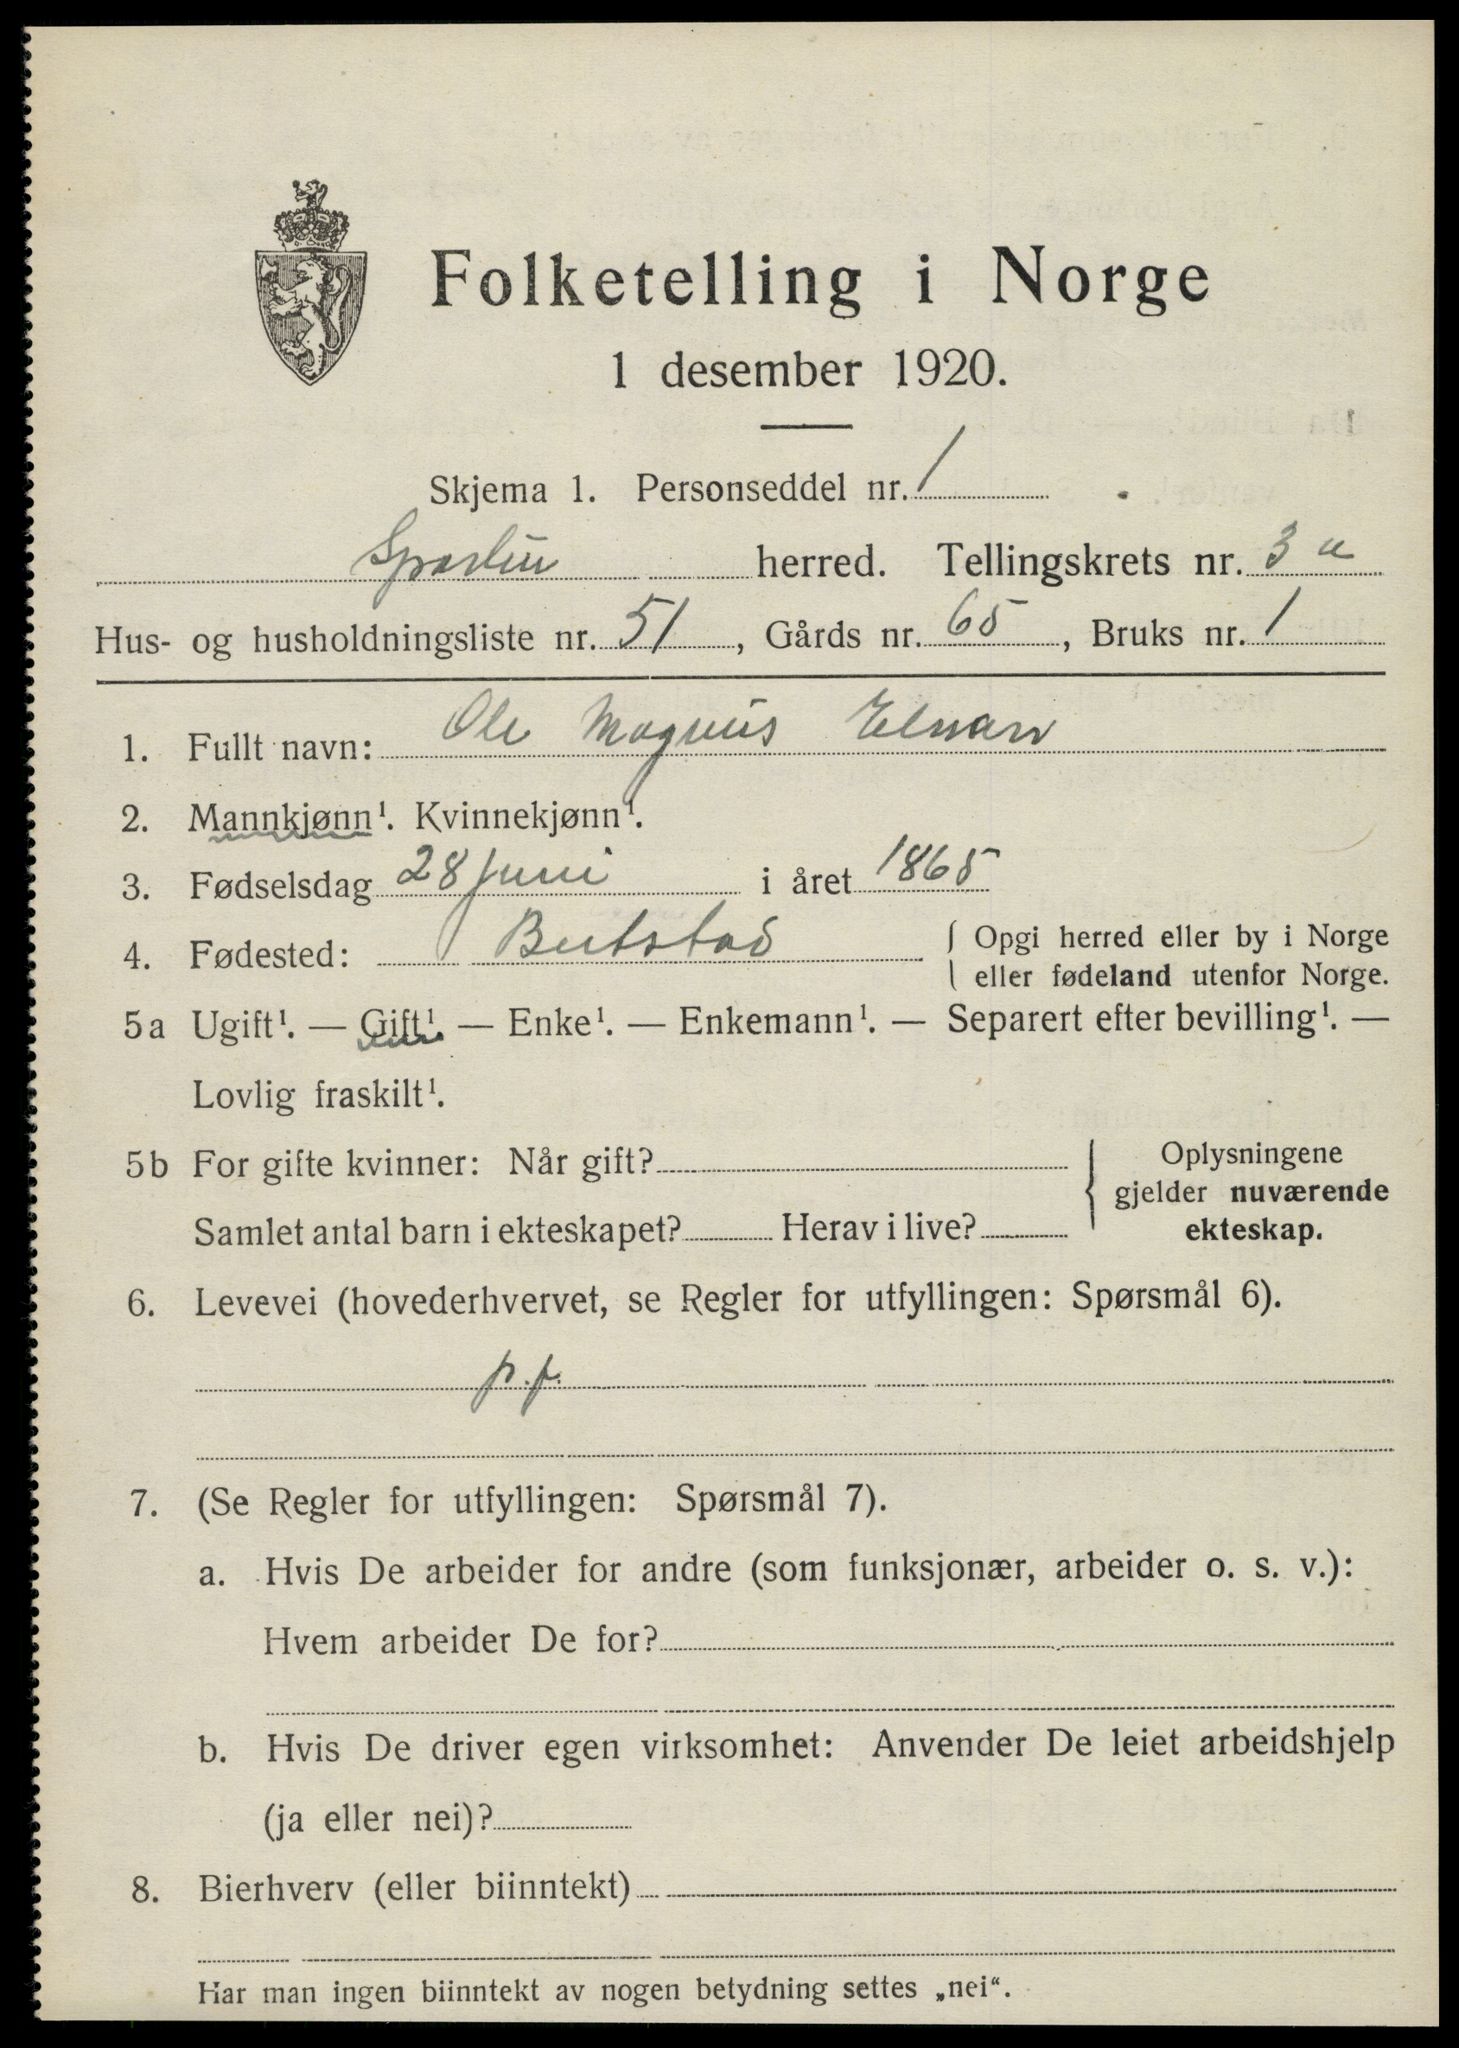 Folketelling i Norge
1 desember 1920.
Skjema 1. Personseddel nr. 1
Sparbu herred. Tellingskrets nr. 3 a
Hus- og husholdningsliste nr. 51, Gårds nr. 65, Bruks nr. 1
1. Fullt navn: Ole Magnus
2. Mannkjønn¹. Kvinnekjønn¹.
3. Fødselsdag 28 juni i året 1865
4. Fødested: Beitstad { Opgi herred eller by i Norge
eller fødeland utenfor Norge.
5a Ugift¹. — Gift¹. — Enke¹. — Enkemann¹. — Separert efter bevilling¹. —
Lovlig fraskilt¹.
5b For gifte kvinner: Når gift?
Samlet antal barn i ekteskapet? Herav i live?
{ Oplysningene
gjelder nuværende
ekteskap.
6. Levevei (hovederhvervet, se Regler for utfyllingen: Spørsmål 6).
p.f.
7. (Se Regler for utfyllingen: Spørsmål 7).
a. Hvis De arbeider for andre (som funksjonær, arbeider o. s. v.):
Hvem arbeider De for?
b. Hvis De driver egen virksomhet: Anvender De leiet arbeidshjelp
(ja eller nei)?
8. Bierhverv (eller biinntekt)
Har man ingen biinntekt av nogen betydning settes „nei“.